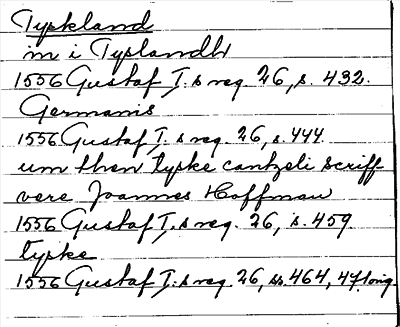 Tyskland
m i Tyslandh
1556 Gustaf I. s reg. 26, s. 432.
Germanis
1556 Gustaf I. s reg. 26, s. 444.
um then tyske cantzeli scriff
vere Joannes Hoffman
1556 Gustaf I. s reg. 26, s. 459.
tyske
1556 Gustaf I. s reg. 26, ss. 464, 47